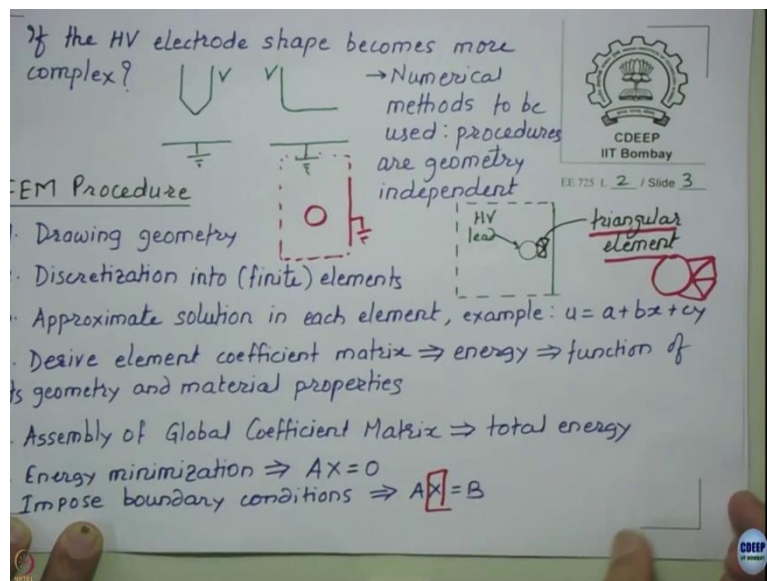 If the HV electrode shape becomes more
complex?
V
V
→ Numerical
methods to be
used: procedures
are geometry
independent
CDEEP
IIT Bombay
EE 725 L 2 / Slide 3
FEM Procedure
HV
lead
triangular
element
. Drawing geometry
. Discretization into (finite) elements
. Approximate solution in each element, example: u = a + bx + cy
. Derive element coefficient matrix ⇒ energy ⇒ function of
ts geometry and material properties
. Assembly of Global Coefficient Matrix ⇒ total energy
. Energy minimization ⇒ AX = 0
Impose boundary conditions ⇒ AX = B
NPTEL
CDEEP
IIT BOMBAY